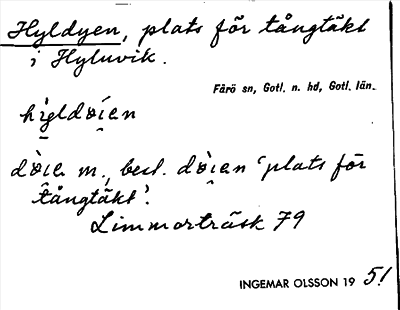 Hyldyen, plats för tångtäkt
i Hyluvik.
Fårö sn, Gotl. n. hd, Gotl. län.
hi̬gldøíen
dòie m., best. dòien 'plats för
tångtäkt'.
Limmorträsk 79
INGEMAR OLSSON 19 51